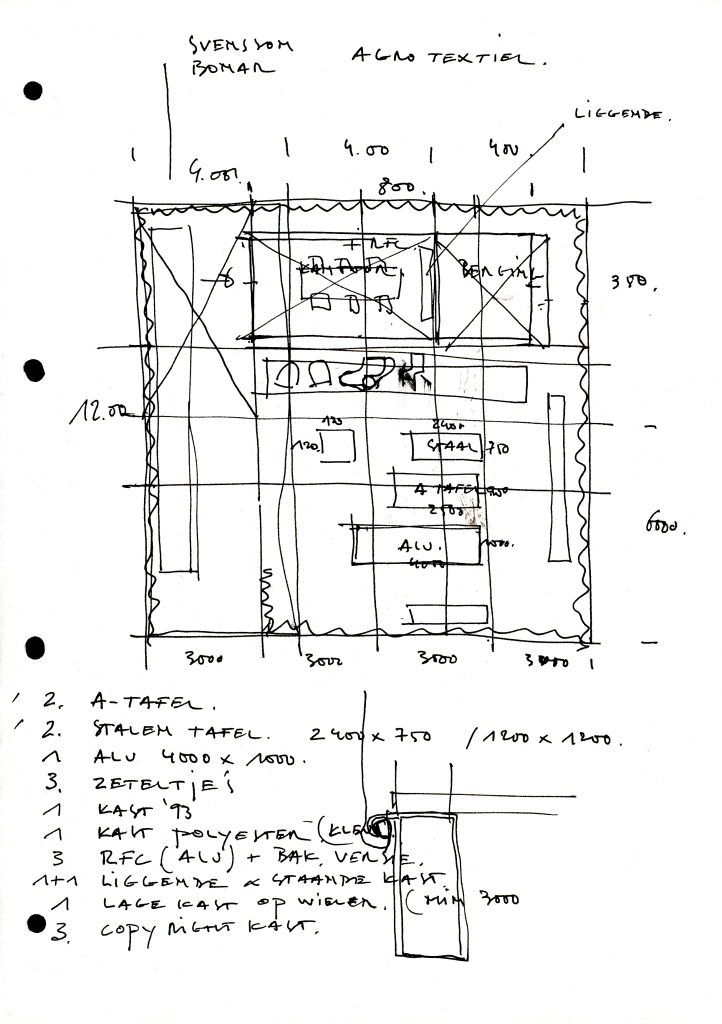 SVENSSOM
BOMAR
AGRO TEXTIEL.
LIGGENDE.
4.00
400
4.00
800.
+ RFC
KANTOOR
BERGING
350.
12.00
120
120
2400
STAAL 750
A TAFEL 800
2500
ALU. 1000.
4000
6000.
3000 3000 3000 3000
2. A-TAFEL.
2. STALEN TAFEL. 2400 x 750 / 1200 x 1200.
1 ALU 4000 x 1000.
3. ZETELTJE'S
1 KAST '93
1 KAST POLYESTER
3 RFC (ALU) + BAK VERSIE.
1+1 LIGGENDE & STAANDE KAST
1 LAGE KAST OP WIELEN. (MIN 3000
3. COPYRIGHT KAST.